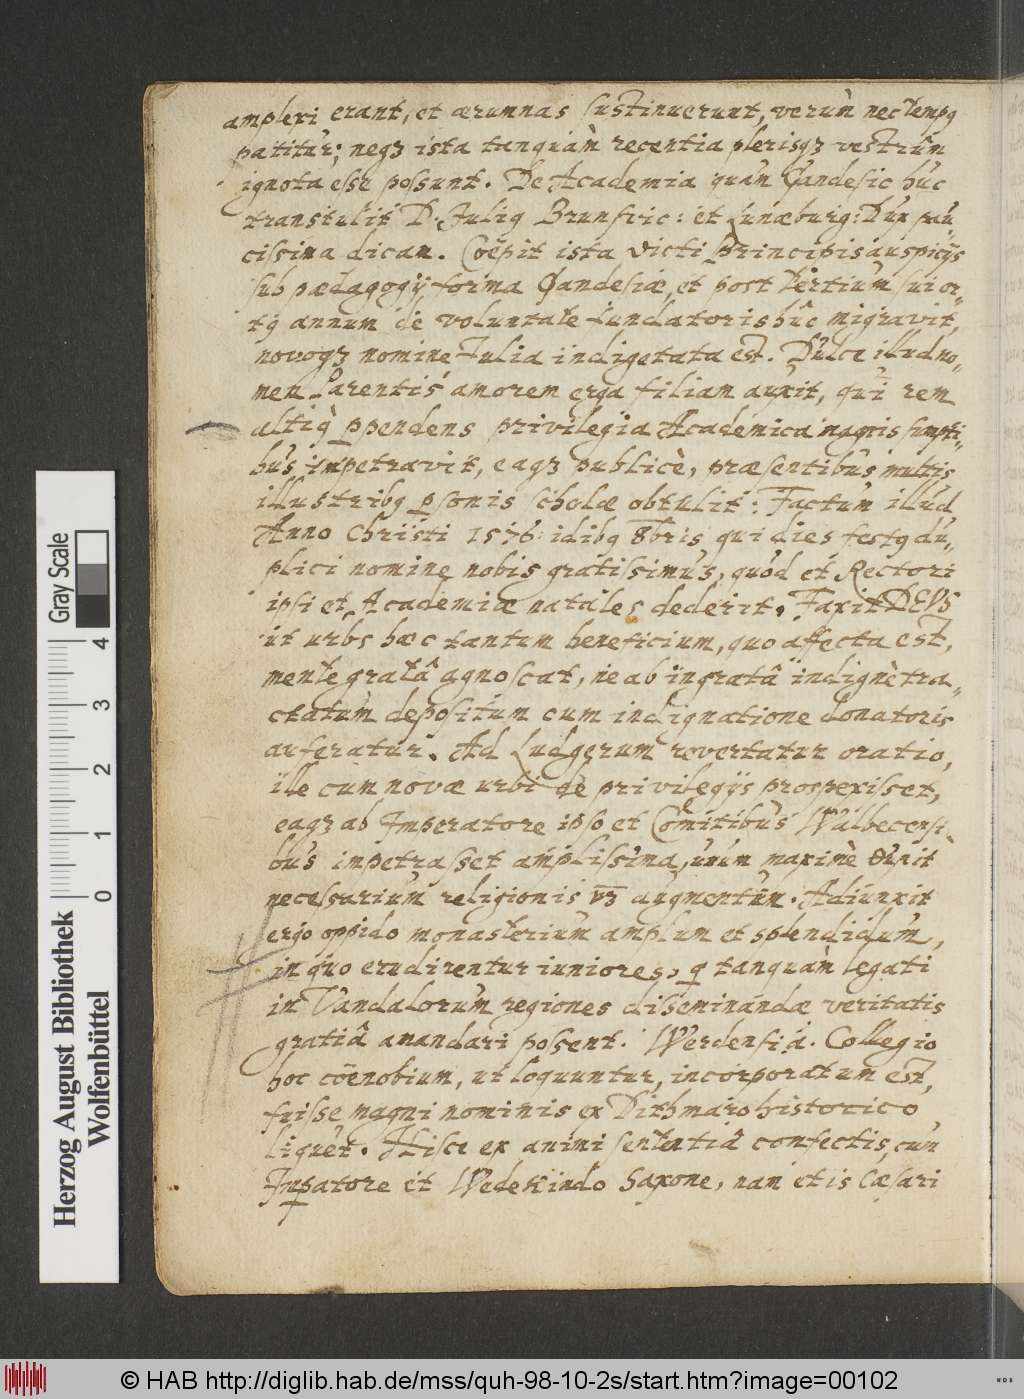 amplexi erant, et ærumnas sustinuerunt, verùm nec tempꝰ
patitur; neqꝫ ista tanquàm recentia plerisqꝫ vestrûm
ignota esse possunt. De Academia quàm Gandesic huc
transtulit D. Juliꝰ Brunsvic: et Lunæburg: Dux pau„
cissima dicam. Coëpit ista dicti Principis auspicijs
sub pædagogij forma Gandesiæ, et post tertium sui or„
tꝰ annum de voluntate fundatoris hûc migravit,
novoqꝫ nomine Julia indigetata est. Dulce illud no„
men Parentis amorem erga filiam auxit, qui rem
altiꝰ ꝑpendens privilegia Academica magnis sumpti„
bus impetravit, eaqꝫ publicè, præsentibus multis
illustribꝰ ꝑsonis scholæ obtulit: Factum illud
Anno Christi 1576 idibꝰ 8bris qui dies festꝰ du„
plici nomine nobis gratissimus, quòd et Rectori
ipsi et Academiæ natales dederit. Faxit DEVS
ut urbs hæc tantum beneficium, quo affecta est,
mente gratâ agnoscat, ne ab ingratâ indignè tra„
ctatum depositum cum indignatione donatoris
auferatur. Ad Ludgerum revertatur oratio,
ille cum novæ urbi de privilegijs prospexisset,
eaqꝫ ab Imperatore ipso et Comitibus Walbecensi„
bus impetrasset amplissima, unum maximè duxit
necessarium religionis vꝫ augmentum. Adiunxit
ergo oppido monasterium amplum et splendidum,
in quo erudirentur iuniores, q tanquàm legati
in Vandalorum regiones disseminandæ veritatis
gratiâ amandari possent. Werdensi a. Collegio
hoc coënobium, ut loquuntur, incorporatum est,
fuisse magni nominis ex Dithmaro historico
liquet. Hisce ex animi sententiâ confectis, cum
Imꝑatore et Wedekindo Saxone, nam et is Cæsari
Herzog August Bibliothek
Wolfenbüttel
Gray Scale
0 1 2 3 4
© HAB http://diglib.hab.de/mss/quh-98-10-2s/start.htm?image=00102